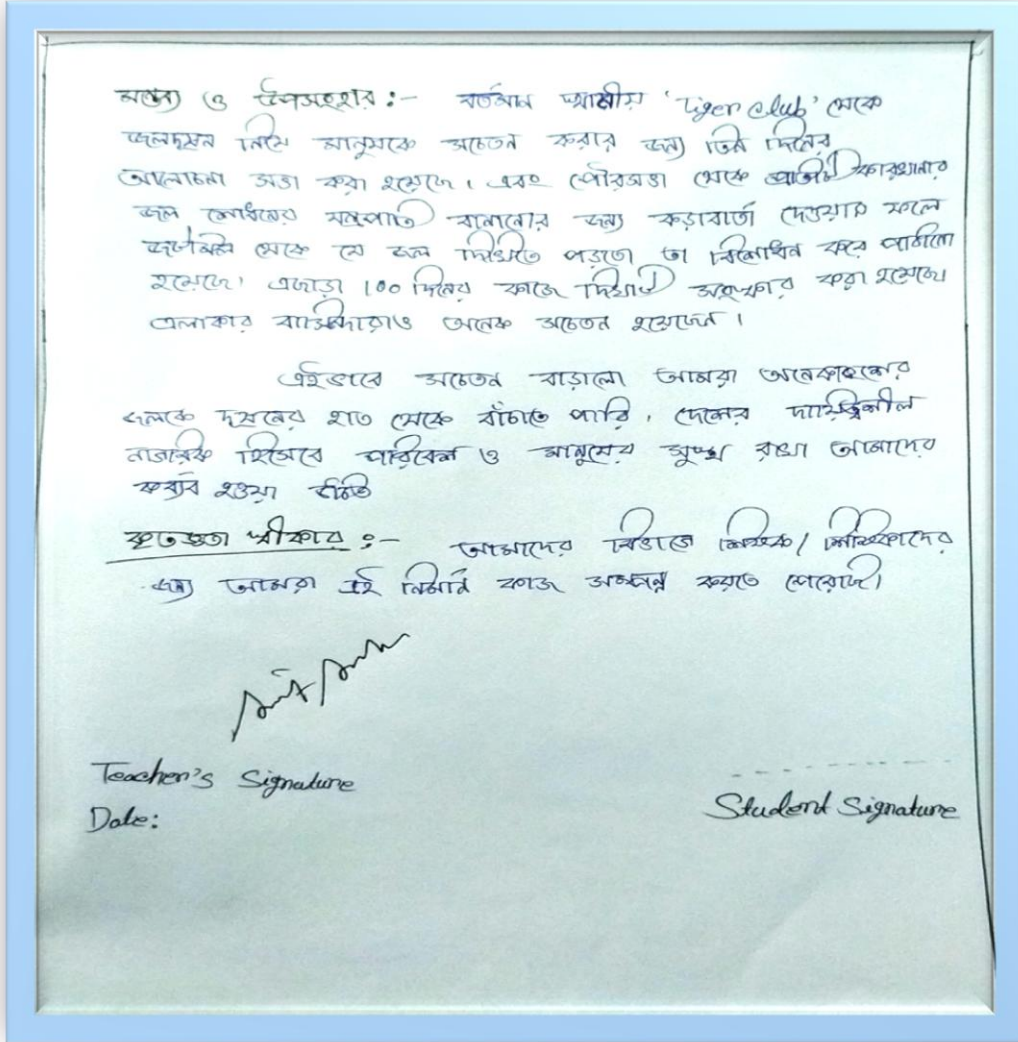 মন্তব্য ও উপসংহার :- বর্তমান স্থানীয় 'Tiger Club' থেকে
জলদূষন নিয়ে মানুষকে সচেতন করার জন্য তিন দিনের
আলোচনা সভা করা হয়েছে। এবং পৌরসভা থেকে প্রতিটি কারখানার
জল শোধনের যন্ত্রপাতি বানানোর জন্য কড়াবার্তা দেওয়ায় ফলে
থেকে যে জল দিঘিতে পড়তো তা বিশোধন করে পাঠানো
হয়েছে। এছাড়া 100 দিনের কাজে দিঘিটি সংস্কার করা হয়েছে।
এলাকার বাসিন্দারাও অনেক সচেতন হয়েছেন।
এইভাবে সচেতন বাড়ালো আমরা অনেকাংশের
জলকে দূষনের হাত থেকে বাঁচাতে পারি। দেশের দায়িত্বশীল
নাগরিক হিসেবে পরিবেশ ও মানুষের সুস্থ রাখা আমাদের
হওয়া উচিত
কৃতজ্ঞতা স্বীকার :- আমাদের বিভাগে শিক্ষক / শিক্ষিকাদের
জন্য আমরা এই কাজ সম্পন্ন করতে পেরেছি।
Teacher's Signature
Date:
Student Signature